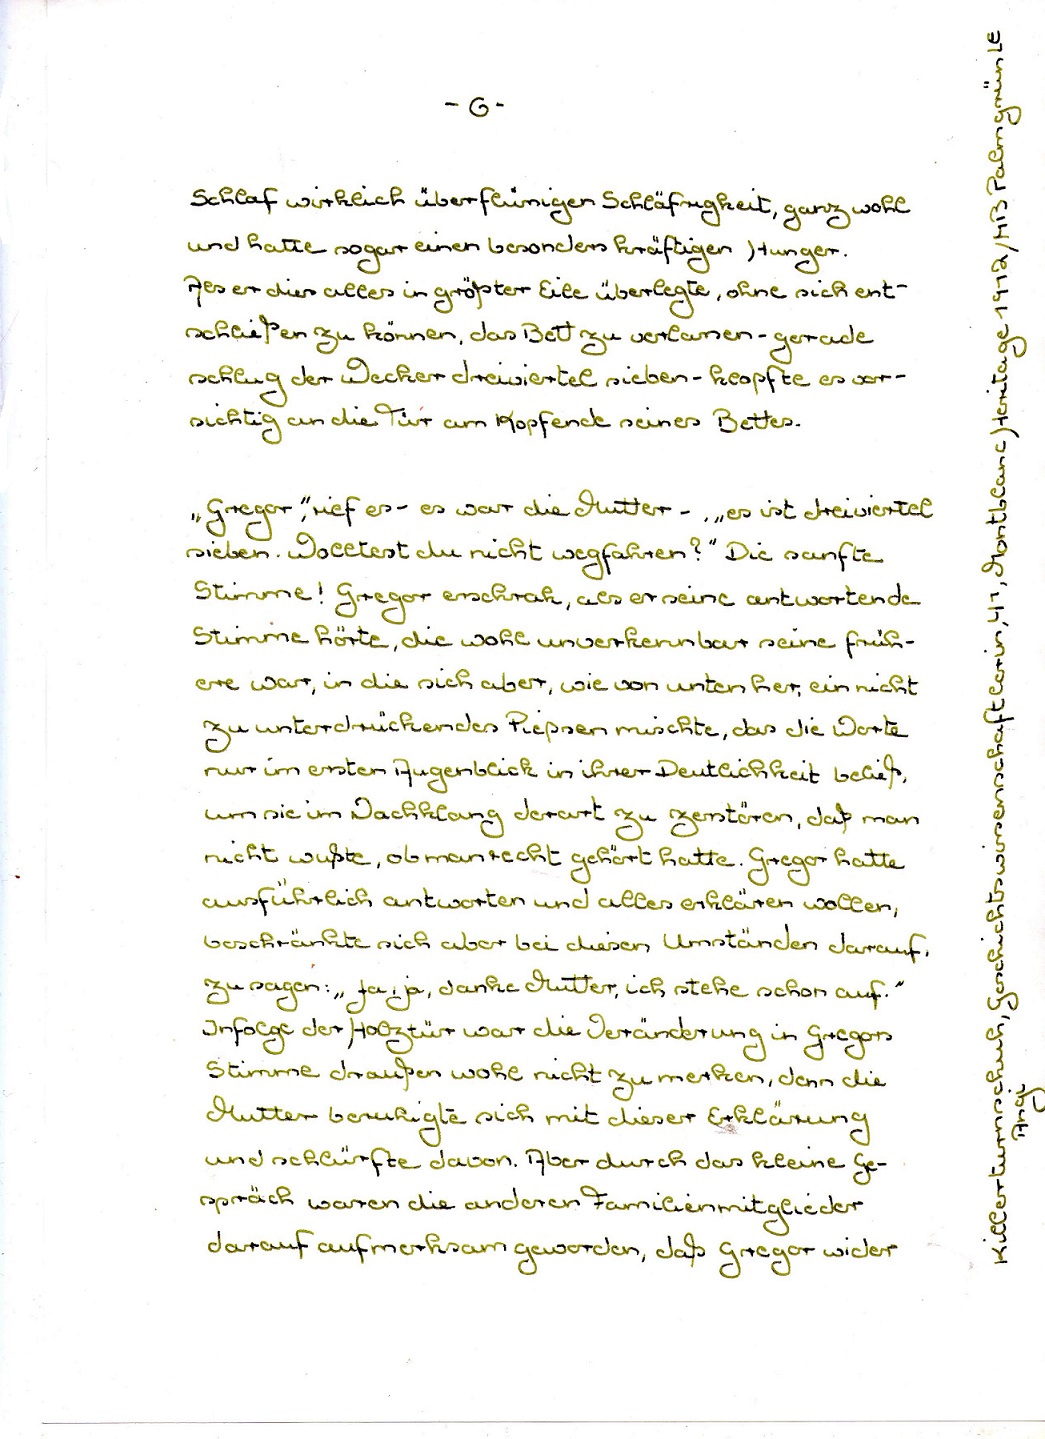 - 6 -
Schlaf wirklich überflüssigen Schläfrigkeit, ganz wohl
und hatte sogar einen besonders kräftigen Hunger.
Als er dies alles in größter Eile überlegte, ohne sich ent-
schließen zu können, das Bett zu verlassen - gerade
schlug der Wecker dreiviertel sieben - klopfte es vor-
sichtig an die Tür am Kopfende seines Bettes.
„Gregor“, rief es - es war die Mutter -, „es ist dreiviertel
sieben. Wolltest du nicht wegfahren?“ Die sanfte
Stimme! Gregor erschrak, als er seine antwortende
Stimme hörte, die wohl unverkennbar seine früh-
ere war, in die sich aber, wie von unten her, ein nicht
zu unterdrückendes Piepsen mischte, das die Worte
nur im ersten Augenblick in ihrer Deutlichkeit beließ,
um sie im Nachklang derart zu zerstören, daß man
nicht wußte, ob man recht gehört hatte. Gregor hatte
ausführlich antworten und alles erklären wollen,
beschränkte sich aber bei diesen Umständen darauf,
zu sagen: „Ja, ja, danke Mutter, ich stehe schon auf.“
Infolge der Holztür war die Veränderung in Gregors
Stimme draußen wohl nicht zu merken, denn die
Mutter beruhigte sich mit dieser Erklärung
und schlürfte davon. Aber durch das kleine Ge-
spräch waren die anderen Familienmitglieder
darauf aufmerksam geworden, daß Gregor wider
Killerturnschuh, Geschichtswissenschaftlerin, 41, Montblanc Heritage 1912/MB Palmgrün LE